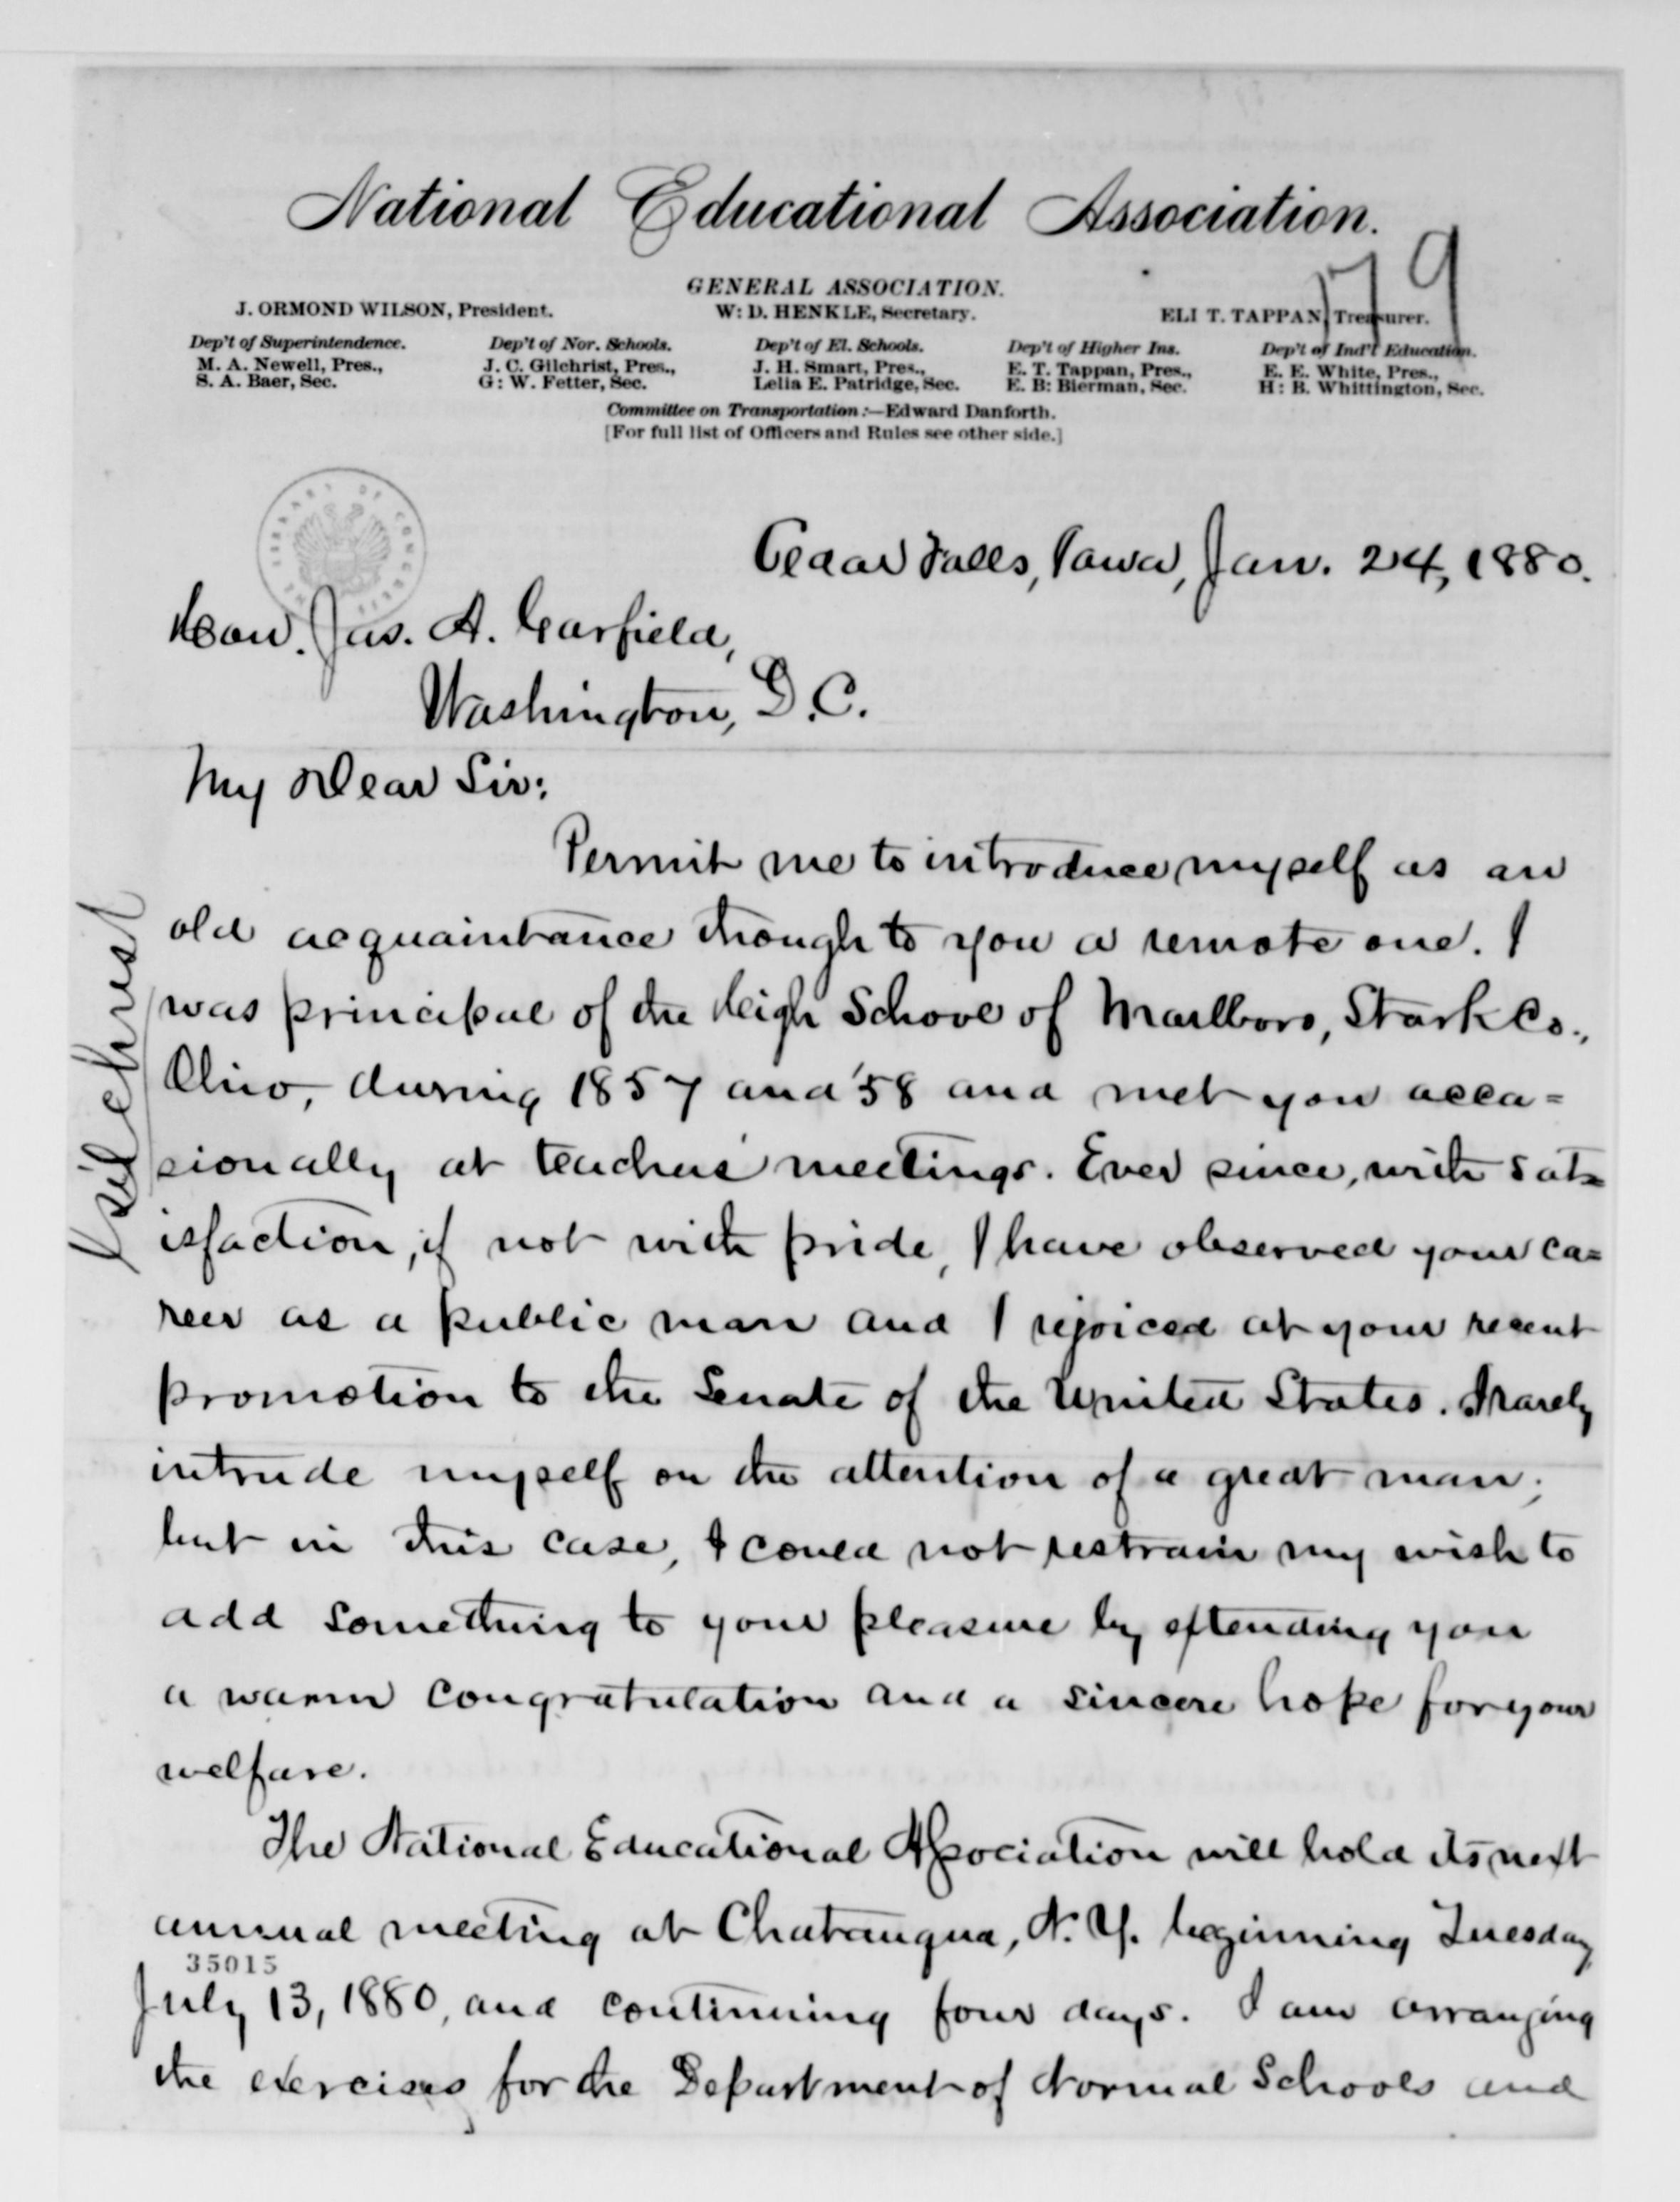 National Educational Association.
179
GENERAL ASSOCIATION.
J. ORMOND WILSON, President. W: D. HENKLE, Secretary. ELI T. TAPPAN, Treasurer.
Dep't of Superintendence. Dep't of Nor. Schools. Dep't of El. Schools. Dep't of Higher Ins. Dep't of Ind'l Education.
M. A. Newell, Pres., J. C. Gilchrist, Pres., J. H. Smart, Pres., E. T. Tappan, Pres., E. E. White, Pres.,
S. A. Baer, Sec. G: W. Fetter, Sec. Lelia E. Patridge, Sec. E. B: Bierman, Sec. H: B. Whittington, Sec.
Committee on Transportation:—Edward Danforth.
[For full list of Officers and Rules see other side.]
LIBRARY OF CONGRESS
Cedar Falls, Iowa, Jan. 24, 1880.
Hon. Jas. A. Garfield,
Washington, D.C.
My Dear Sir:
Permit me to introduce myself as an
old acquaintance though to you a remote one. I
was principal of the High School of Marlboro, Stark Co.,
Ohio, during 1857 and '58 and met you occa=
sionally at teachers' meetings. Ever since, with sat=
isfaction, if not with pride, I have observed your ca=
reer as a public man and I rejoiced at your recent
promotion to the Senate of the United States. I rarely
intrude myself on the attention of a great man;
but in this case, I could not restrain my wish to
add something to your pleasure by extending you
a warm congratulation and a sincere hope for your
welfare.
The National Educational Association will hold its next
annual meeting at Chatauqua, N. Y. beginning Tuesday
35015
July 13, 1880, and continuing four days. I am arranging
the exercises for the Department of Normal Schools and
Gilchrist